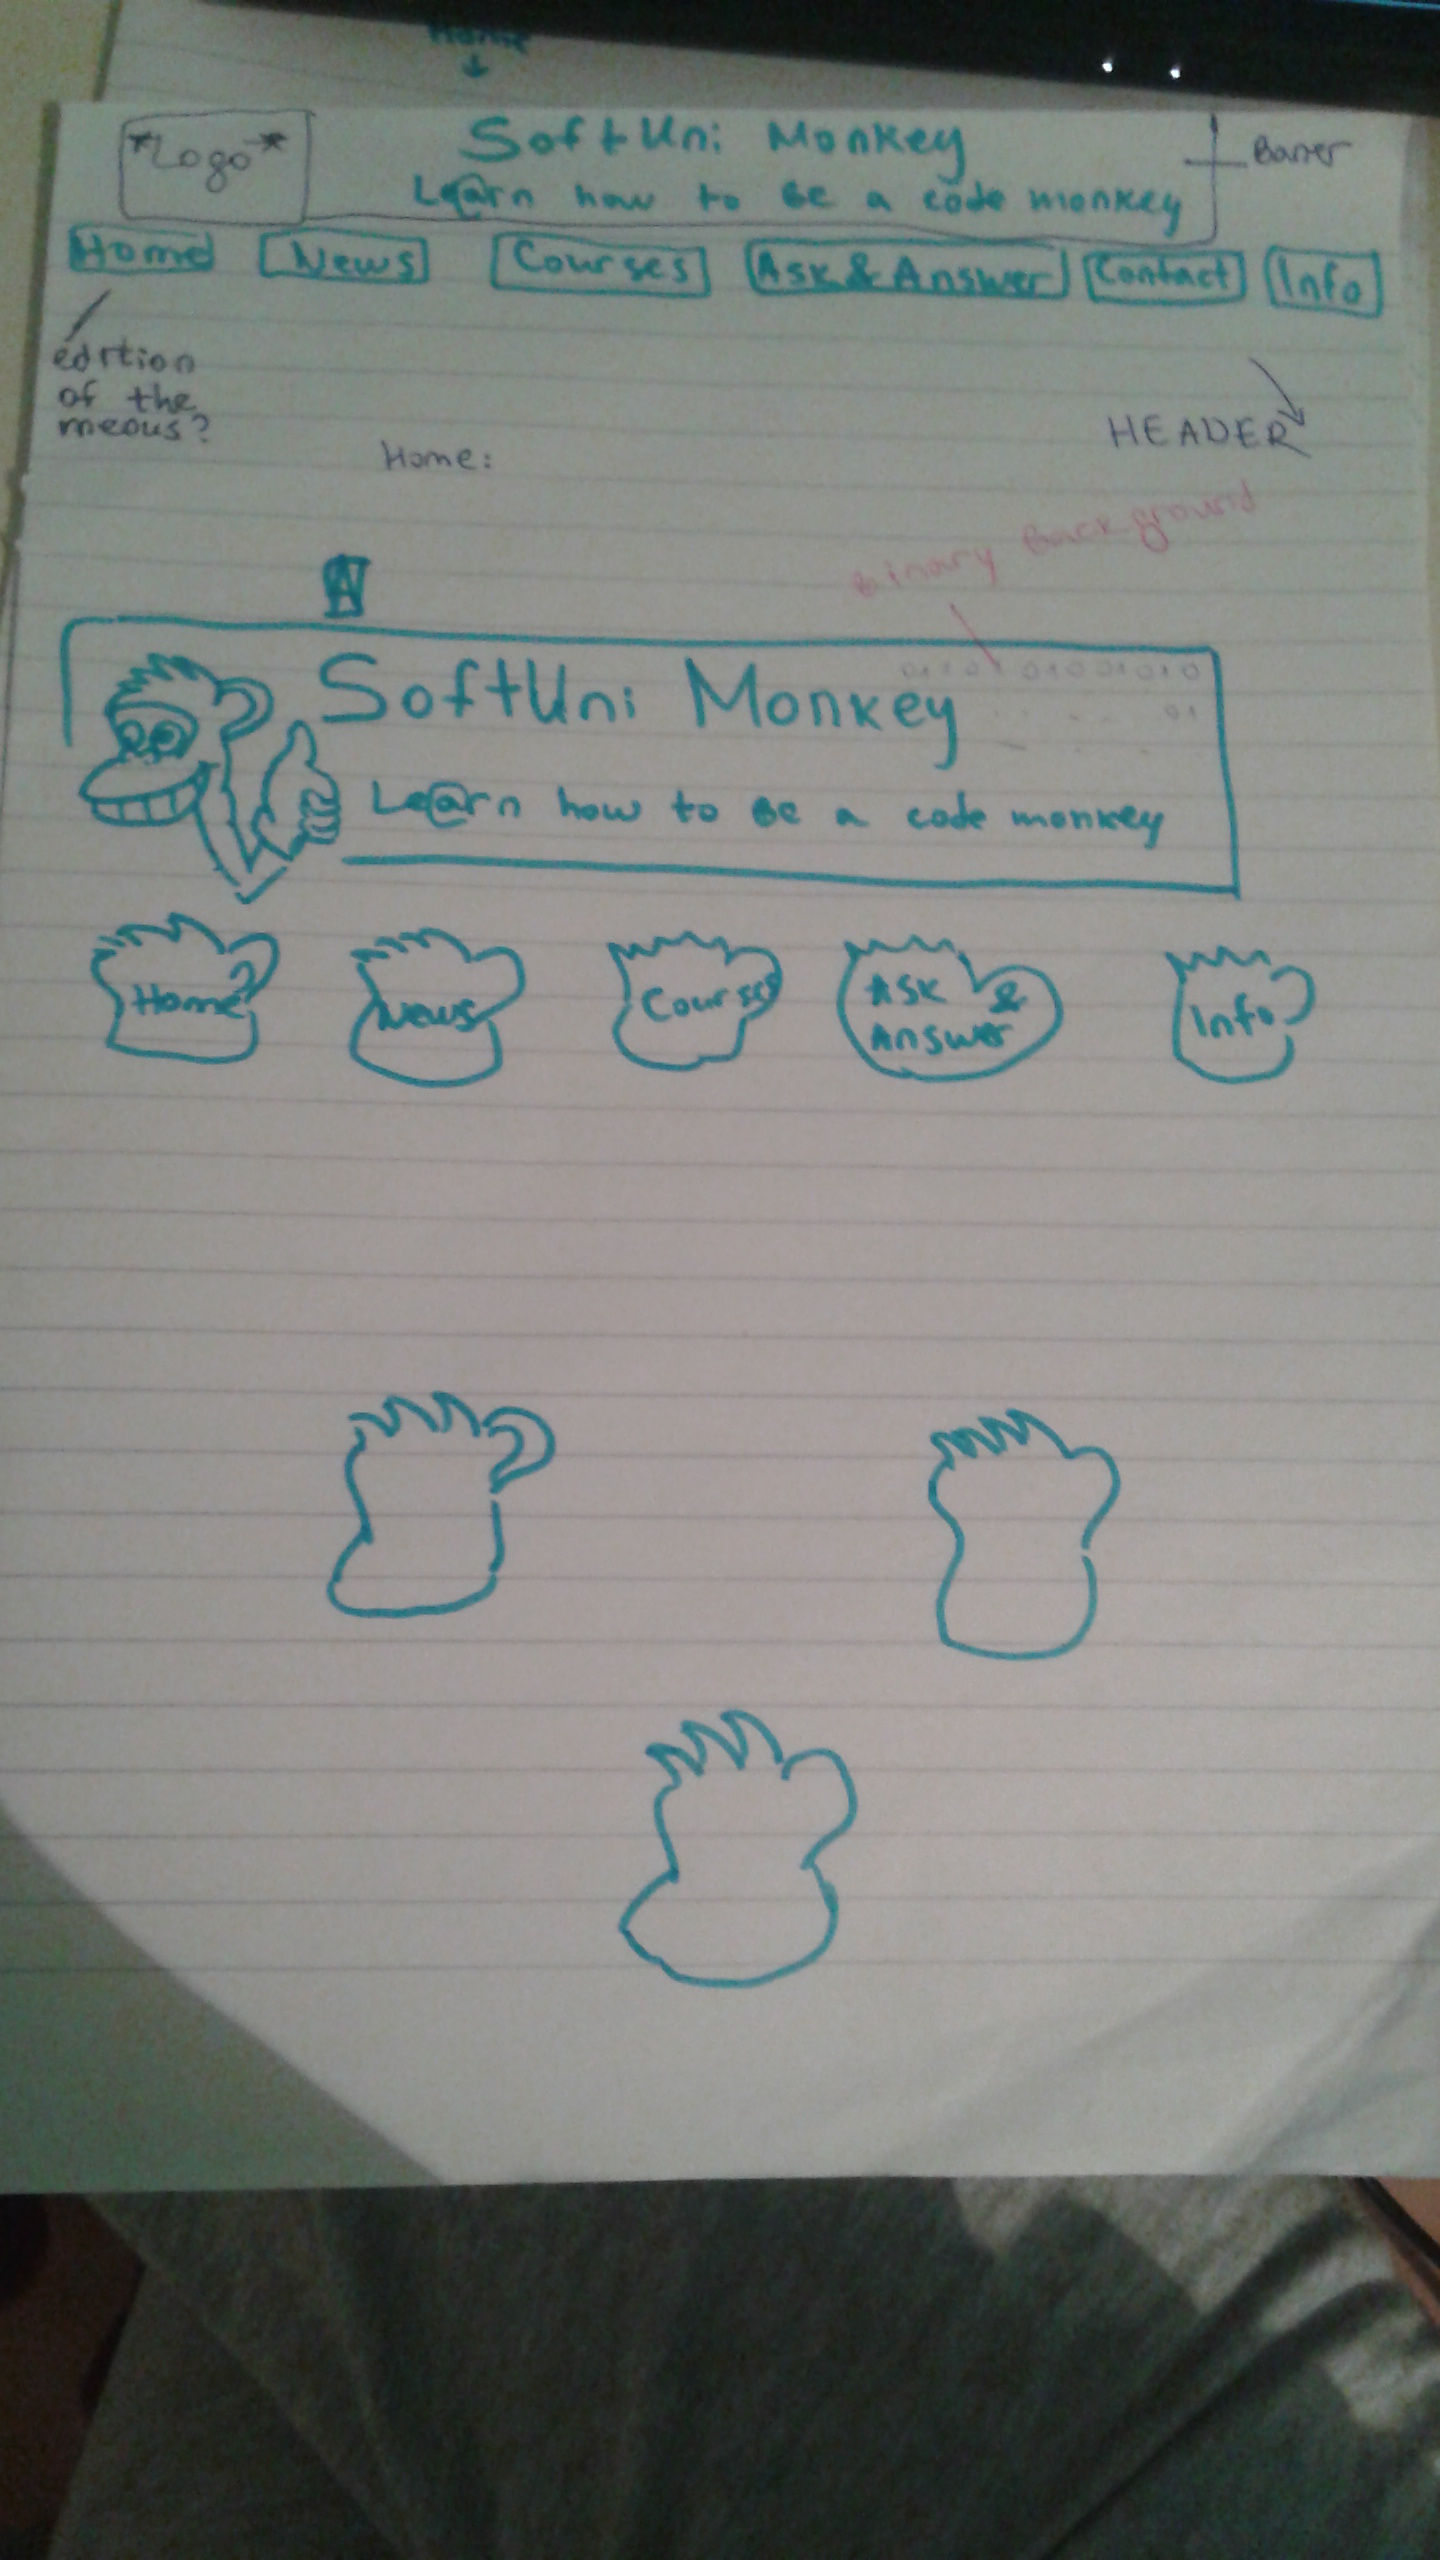 Home
*Logo*
SoftUni Monkey
Baner
Le@rn how to be a code monkey
Home News Courses Ask & Answer Contact Info
edition
of the
HEADER
Home:
Binary Background
SoftUni Monkey
01
Le@rn how to be a code monkey
Home News Courses Ask & Answer Info